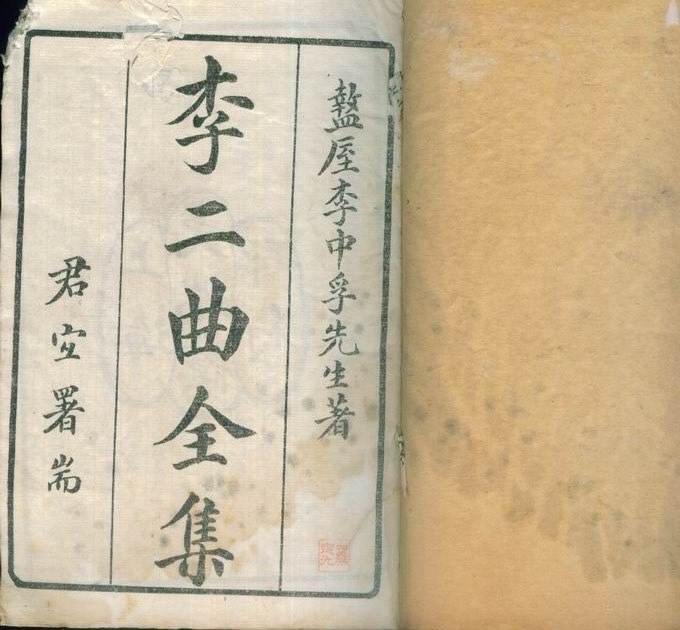 盩厔李中孚先生著
李二曲全集
君宜署耑